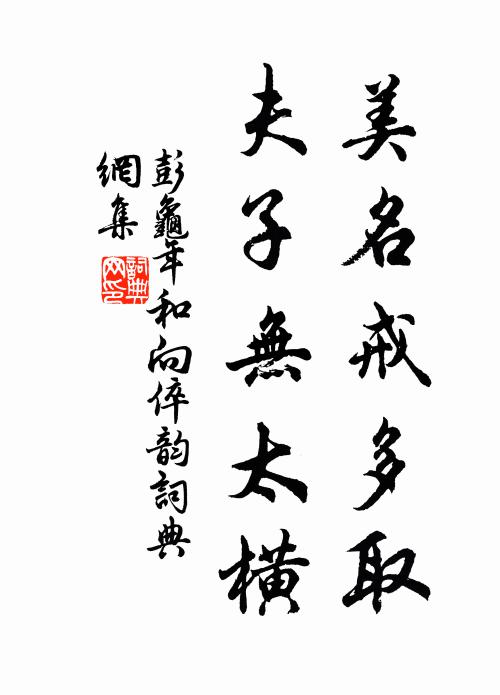 美名戒多取
夫子無太橫
彭龜年和向倅韵詞典
網集
詞典網印